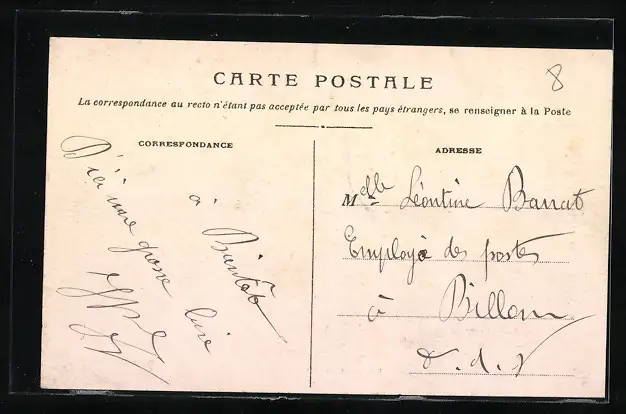 8
CARTE POSTALE
La correspondance au recto n'étant pas acceptée par tous les pays étrangers, se renseigner à la Poste
CORRESPONDANCE
D'ici une grosse
à Bientôt
ADRESSE
Mdlle Léontine Barrat
Employée des postes
à Billom
P. d. D